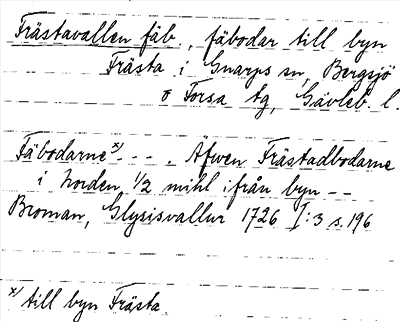 Frästavallen fäb., fäbodar till byn
Frästa i Gnarps sn, Bergsjö
o Forsa tg, Gävleb. l.
Fäbodarne x/ - - - . Äfwen Frästadbodarne
i Norden, 1/2 mihl ifrån byn - -
Broman, Glysisvallur 1726 I:3 s. 196
x/ till byn Frästa.